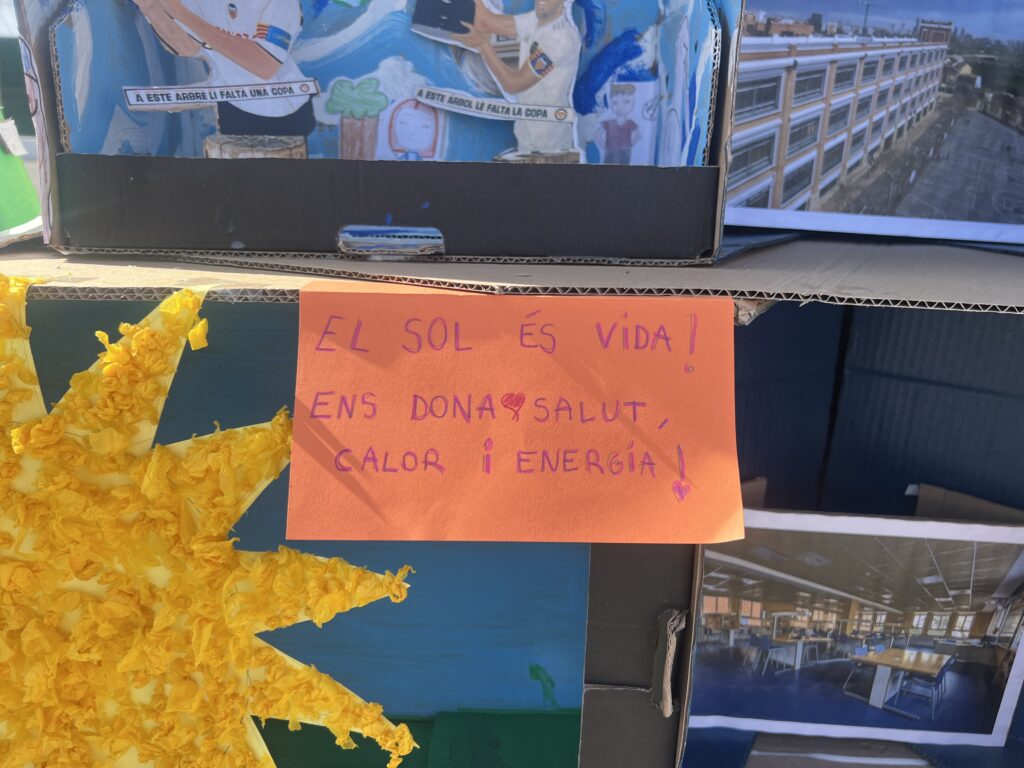 A ESTE ARBRE LI FALTA UNA COPA
A ESTE ARBOL LE FALTA LA COPA
EL SOL ÉS VIDA!
ENS DONA SALUT,
CALOR I ENERGÍA!